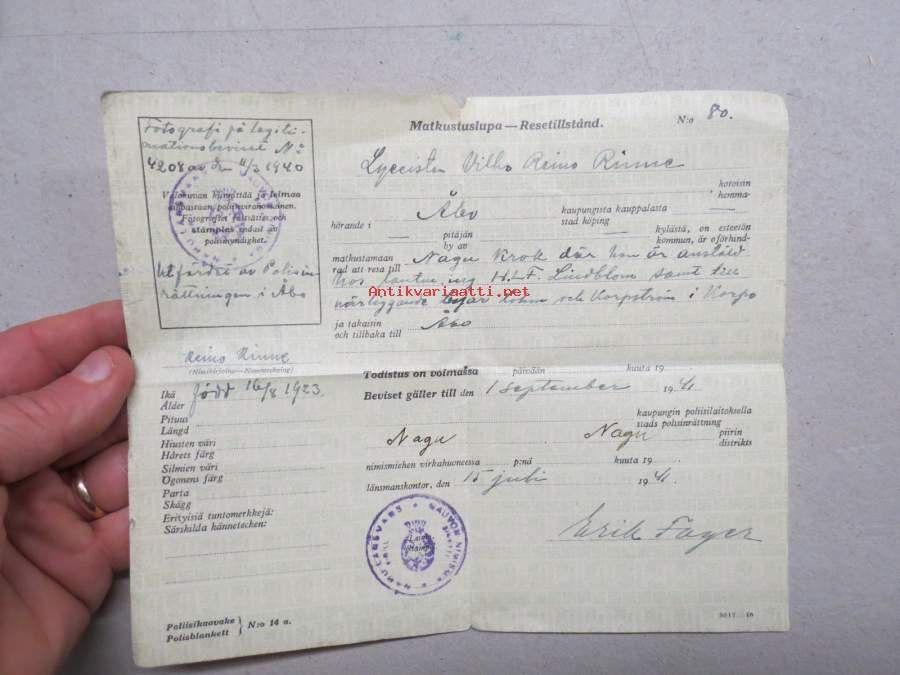 Matkustuslupa—Resetillstånd.
N:o 80.
Fotografi på legiti-
mationsbeviset No
4208 av den 11/3 1940
Valokuvan kiinnittää ja leimaa
ainoastaan poliisiviranomainen.
Fotografiet fastsättes och
stämplas endast av
polismyndighet.
Utfärdat av Polisin-
rättningen i Åbo
Reino Rinne
(Nimikirjoitus—Namnteckning)
Ikä
Ålder
född 16/8 1923.
Pituus
Längd
Hiusten väri
Hårets färg
Silmien väri
Ögonens färg
Parta
Skägg
Erityisiä tuntomerkkejä:
Särskilda kännetecken:
Poliisikaavake
Polisblankett
N:o 14 a.
Lyceisten Vilho Reino Rinne
kotoisin
hemma-
hörande i Åbo kaupungista kauppalasta —
stad köping
— pitäjän — kylästä, on esteetön
by av kommun, är oförhind-
matkustamaan
rad att resa till Nagu Krok där han är anställd
hos lantm. ing. H.L.F. Lindblom samt till
närliggande Lohm och Korpström i Korpo
Antikvariaatti.net
ja takaisin
och tillbaka till Åbo
Todistus on voimassa päivään kuuta 19
Beviset gäller till den 1 September 1941.
kaupungin poliisilaitoksella
stads polisinrättning
Nagu Nagu piirin
distrikts
nimismiehen virkahuoneessa p:nä kuuta 19
länsmanskontor, den 15 juli 1941.
NAUVON NIMISM. PIIRI
NAGU LÄNSMANS
Erik Fager